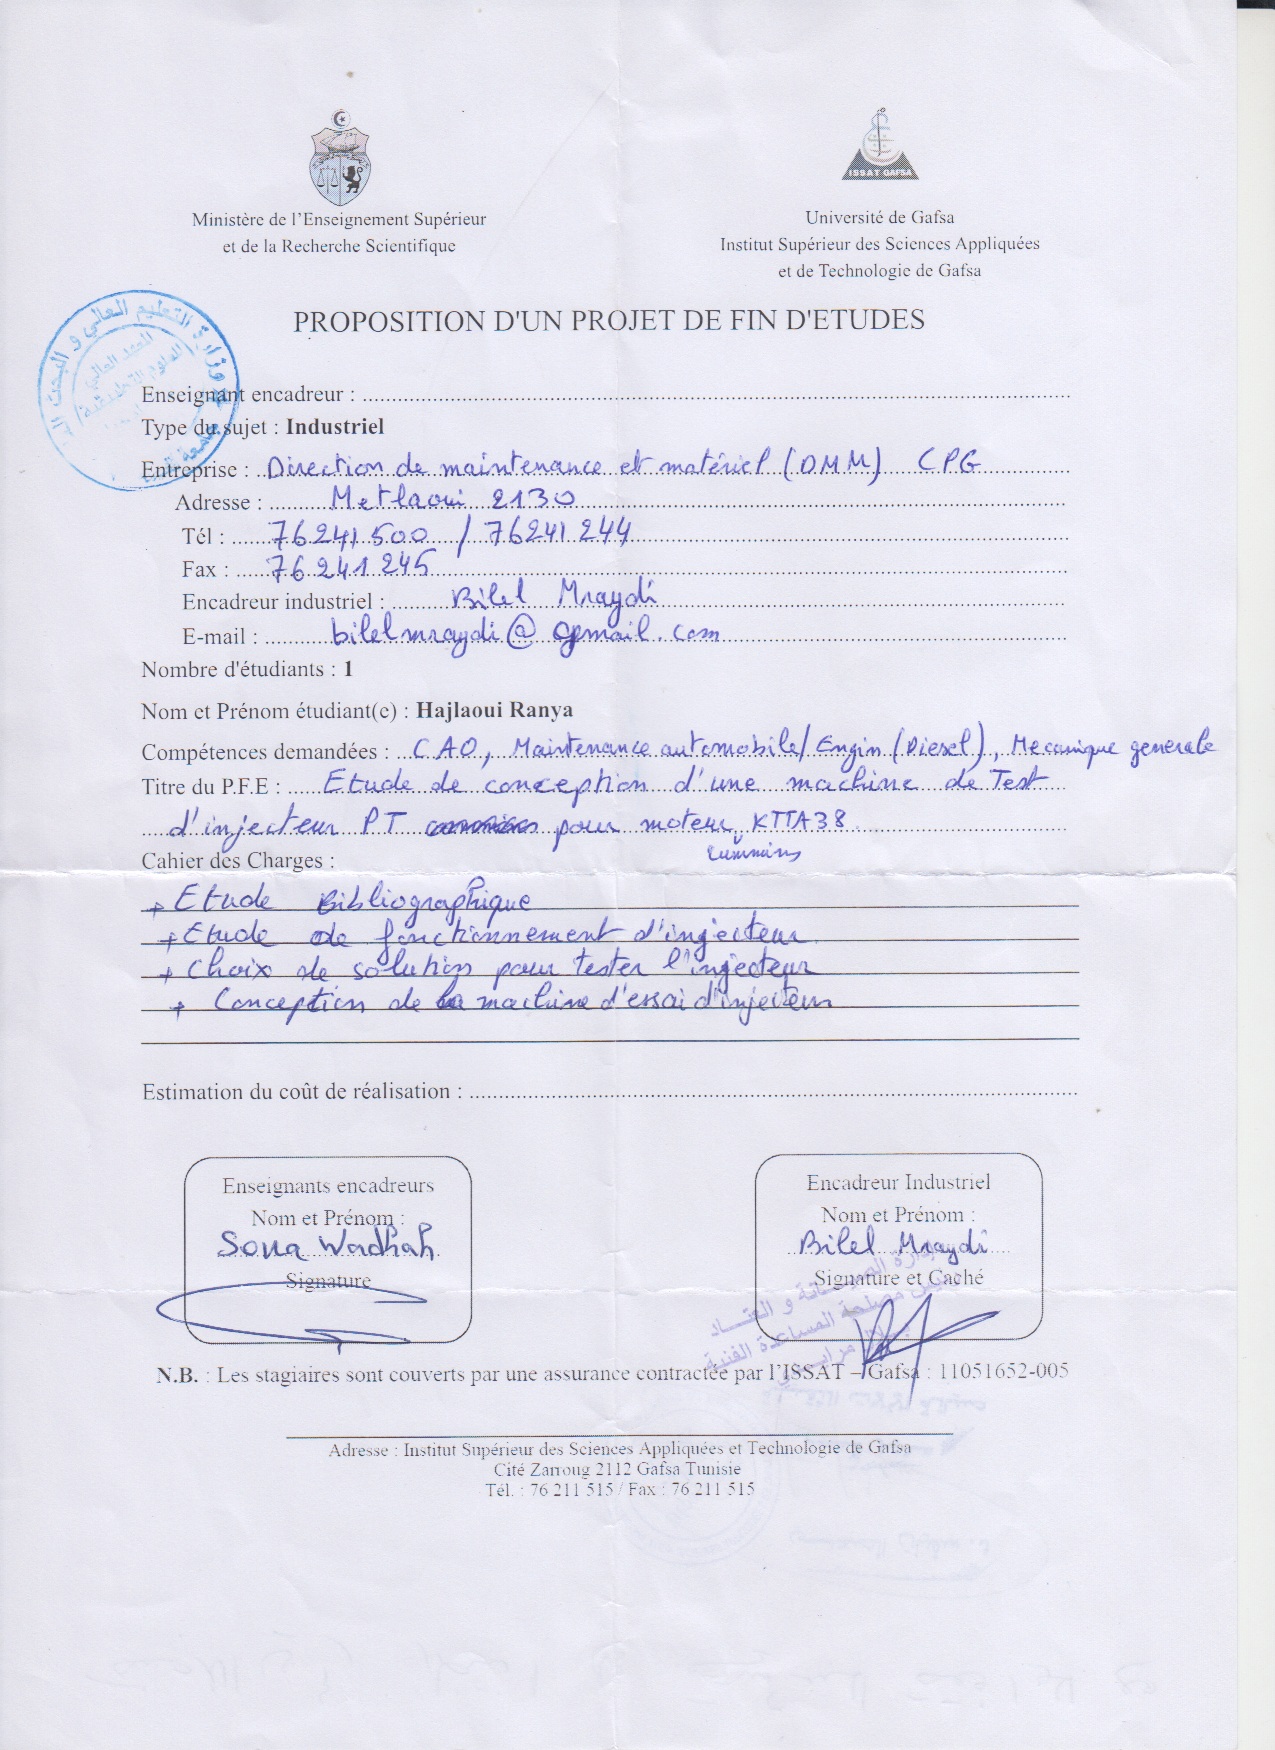 ISSAT GAFSA
Ministère de l'Enseignement Supérieur
et de la Recherche Scientifique
Université de Gafsa
Institut Supérieur des Sciences Appliquées
et de Technologie de Gafsa
PROPOSITION D'UN PROJET DE FIN D'ETUDES
Enseignant encadreur :
Type du sujet : Industriel
Entreprise : Direction de maintenance et matériel (DMM) CPG
Adresse : Metlaoui 2130
Tél : 76 241 500 / 76 241 244
Fax : 76 241 245
Encadreur industriel : Bilel Mraydi
E-mail : bilelmraydi@gmail.com
Nombre d'étudiants : 1
Nom et Prénom étudiant(e) : Hajlaoui Ranya
Compétences demandées : CAO, Maintenance automobile/Engin (Diesel), Mecanique generale
Titre du P.F.E : Etude de conception d'une machine de Test
d'injecteur PT pour moteur KTTA38
cummins
Cahier des Charges :
+ Etude Bibliographique
+ Etude de fonctionnement d'injecteur
+ Choix de solution pour tester l'injecteur
+ Conception de la machine d'essai d'injecteur
Estimation du coût de réalisation :
Enseignants encadreurs
Nom et Prénom :
Soua Wadhah
Signature
Encadreur Industriel
Nom et Prénom :
Bilel Mraydi
Signature et Caché
N.B. : Les stagiaires sont couverts par une assurance contractée par l'ISSAT – Gafsa : 11051652-005
Adresse : Institut Supérieur des Sciences Appliquées et Technologie de Gafsa
Cité Zarroug 2112 Gafsa Tunisie
Tél. : 76 211 515 / Fax : 76 211 515